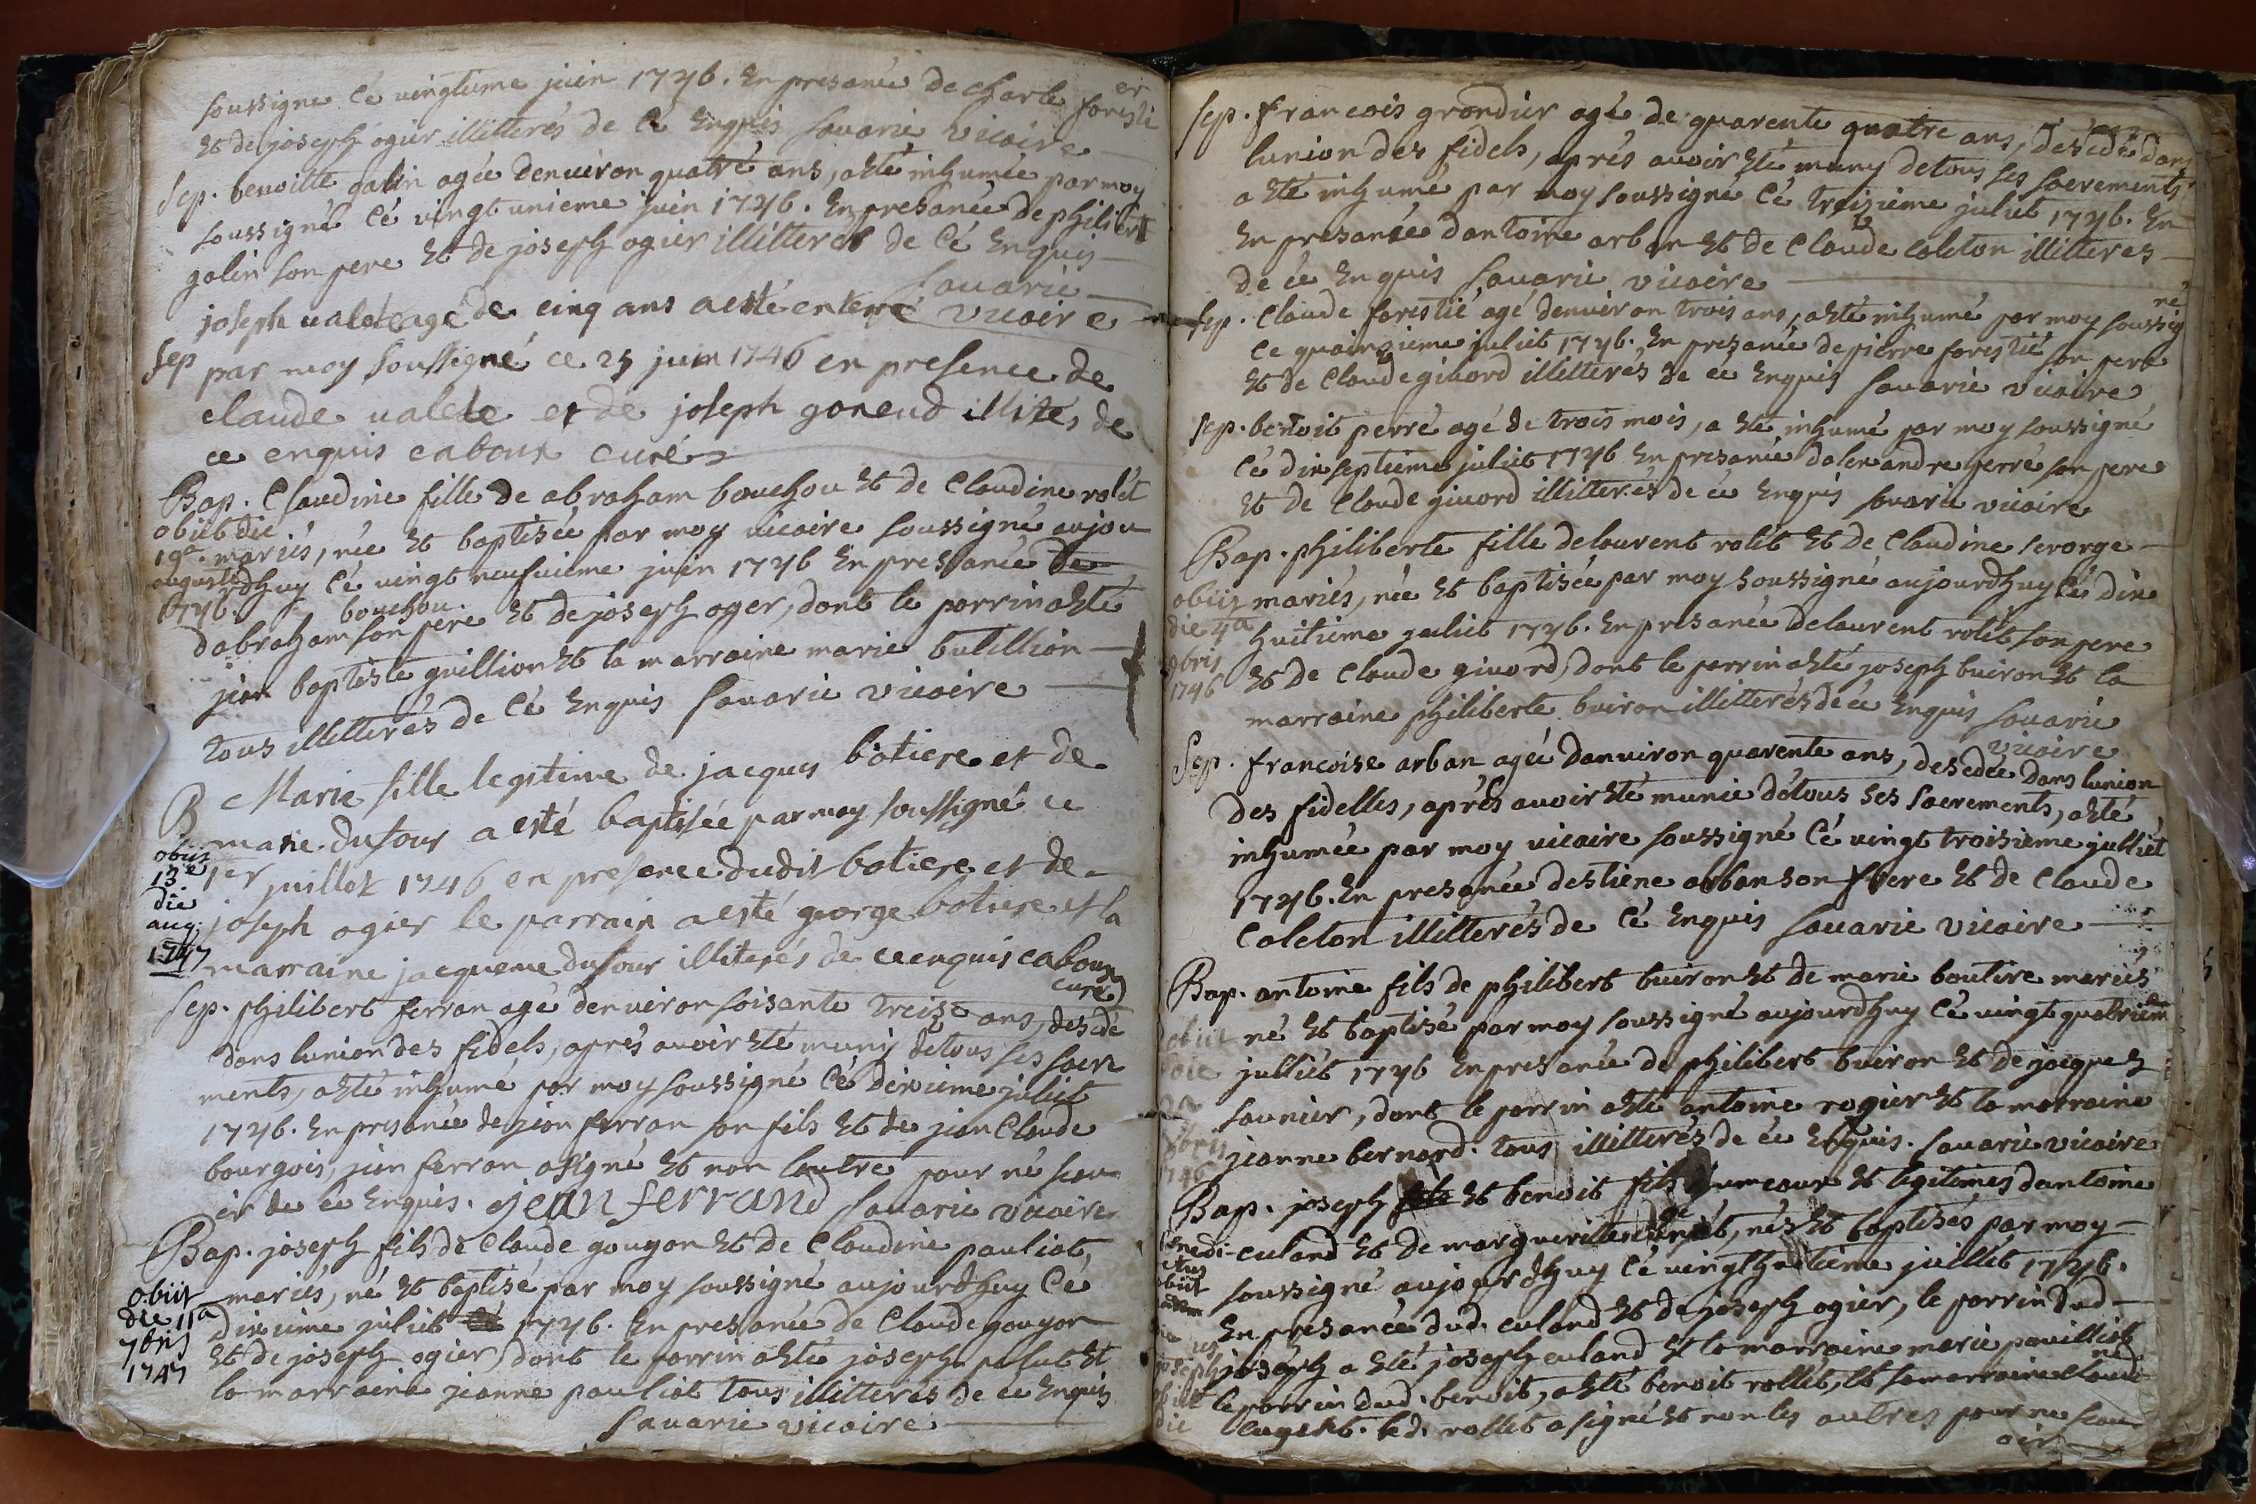 soussigne cé vingtieme juin 1746. En presance de charle foresti
er
Et de joseph ogier illitterés de ce Enquis savarie vicaire
Sep. benoitte galin agée denviron quatre ans, a Eté inhumée par moy
soussigné cé vingt unieme juin 1746. En presance de philibert
galin son pere Et de joseph ogier illitteres de cé Enquis
savarie
joseph valete agé de cinq ans a esté enterré vicaire
Sep par moy soussigné ce 25 juin 1746 en presence de
claude valete et de joseph gonend illités de
ce enquis caboux curé
Bap. Claudine fille de abraham bouchou Et de Claudine rolét
obiit die
19a mariés, née Et baptisée par moy vicaire soussigné aujou
augusti rdhuy cé vingt neufvieme juin 1746 En presance de
1746. bouchou.
dabraham son pere Et de joseph oger, dont le parrin a Eté
jian baptiste guillion Et la marraine marie butillion
tous illitterés de cé Enquis savarie vicaire
B Marie fille legitime de jacques botiere et de
marie dufour a esté baptisée par moy soussigné ce
obiit
13e 1er juillet 1746 en presence dudit botiere et de
die
aug. joseph ogier le parrain a esté george botiere et la
1747 marraine jacqueme dufour illiterés de ce enquis caboux
curé
Sep. philibert ferran agé denviron soisante treize ans, desedé
dans lunion des fidels, aprés avoir Eté muny détous ses sacre
ments, a Eté inhumé par moy soussigné cé dixieme juliet
1746. En presance de jian ferran son fils Et de jian Claude
bourgois, jian ferran a signé Et non lautre pour né scav
oir de ce Enquis. jean ferrand savarie vicaire
Bap. joseph fils de Claude gougon Et de Claudine pauliat,
obiit mariés, né Et baptisé par moy soussigné aujourdhuy cé
die 11a dixieme juliet 1746. En presance de Claude gougon
7bris
1747 Et de joseph ogier, dont le parrin a Eté joseph palut Et
la marraine jianne pauliat tous illitterés de ce Enquis
savarie vicaire
Sep. francois grondier agé de quarente quatre ans, desedé dans
lunion des fidels, aprés avoir Eté muny detous ses sacrements,
a Eté inhumé par moy soussigné cé treizieme juliet 1746. En
En presance dantoine arban Et de Claude coleton illitteres
de ce Enquis savarie vicaire
Sep. Claude forestié agé denviron trois ans, a Eté inhumé par moy soussig
né
ce quainzieme juliet 1746. En presance de pierre forestié son pere
Et de Claude givord illitterés de ce Enquis savarie vicaire
Sep. benoit perré agé de trois mois, a Eté inhumé par moy soussigné
cé dixseptieme juliet 1746 En presance dalexandre perré son pere
Et de Claude givord illitterés de ce Enquis savarie vicaire
Bap. philiberte fille delaurent rolét Et de Claudine serorge
obiit mariés, née Et baptisée par moy soussigné aujourdhuy cé dixe
die 4a huitieme juliet 1746. En presance delaurent rolét son pere
9bris
1746 Et de Claude givord, dont le parrin a Eté joseph buiron Et la
marraine philiberte buiron illitterés de ce Enquis savarie
vicaire
Sep. francoise arban agée danviron quarente ans, desedée dans lunion
des fidelles, aprés avoir Eté munie détous ses sacrements, a Eté
inhumée par moy vicaire soussigné cé vingt troisieme julliet
1746. En presance destiene arban son frere Et de Claude
Coleton illitterés de cé Enquis savarie vicaire
Bap. antoine fils de philibert buiron Et de marie boutire mariés
obiit né Et baptisé par moy soussigné aujourdhuy cé vingt quatriem
die julliet 1746 En presance de philibert buiron Et de jacques
saunier, dont le parrin a Eté antoine rogier Et la marraine
1746 jianne bernard. tous illitterés de ce Enquis. savarie vicaire
Bap. joseph Et benoit fils jumeaux Et legitimes dantoine
benedi- culand Et de margueritte, nés Et baptisés par moy
ctus
obiit soussigné aujourdhuy cé vingthuitieme juillét 1746.
En presance dud. culand Et de joseph ogier, le parrin dud.
joseph joseph a Eté joseph culand Et la marraine marie pauilliat
obiit le parrin dud. benoit, a Eté benoit rollét, Et sa marraine claudi
ne
die led. rollét a signé Et non les autres pour ne scav
oir